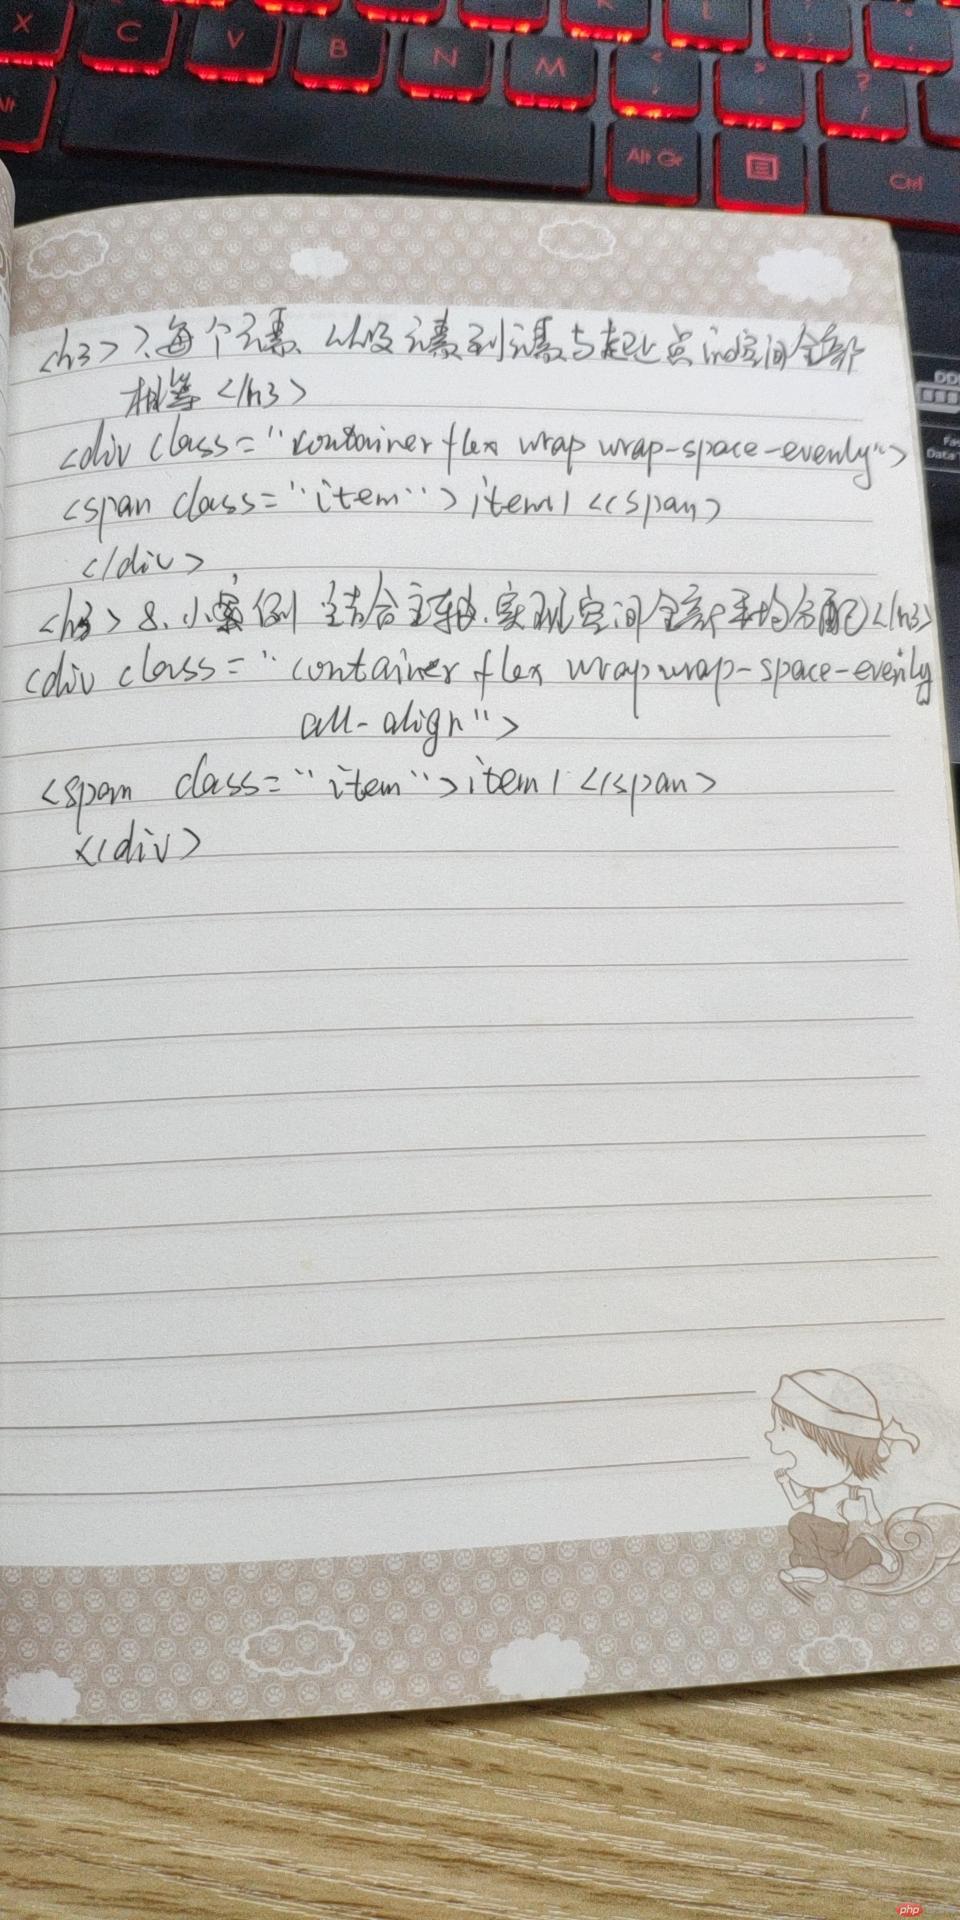 X C V B N M K L
Alt
< ,
> .
? /
Alt Gr
Ctrl
<h3>7、每个元素、以及元素到元素与起止点的空间全部
相等</h3>
<div class="container flex wrap wrap-space-evenly">
<span class="item">item1<</span>
</div>
<h3>8、小案例 结合主轴、实现空间全部平均分配</h3>
<div class="container flex wrap wrap-space-evenly
all-align">
<span class="item">item1</span>
</div>
php